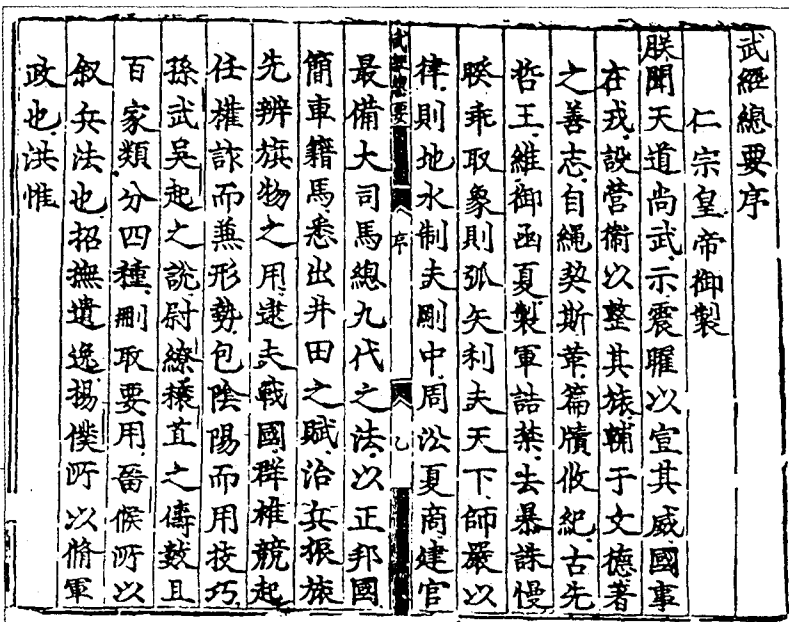 武經總要序
仁宗皇帝御製
朕聞天道尚武示震曜以宣其威國事
在戎設營衛以整其旅輔于文德著
之善志自繩契斯革篇牘攸紀古先
哲王維御函夏製軍詰禁去暴誅慢
睽乖取象則弧矢利夫天下師嚴以
律則地水制夫剛中周沿夏商建官
武經總要
序
乙
最備大司馬總九代之法以正邦國
簡車籍馬悉出井田之賦治兵振旅
先辨旗物之用逮夫戰國群雄競起
任權詐而兼形勢包陰陽而用技巧
孫武吳起之說尉繚穰苴之儔數且
百家類分四種刪取要用畱候所以
叙兵法也招摭遺逸楊僕所以脩軍
政也洪惟